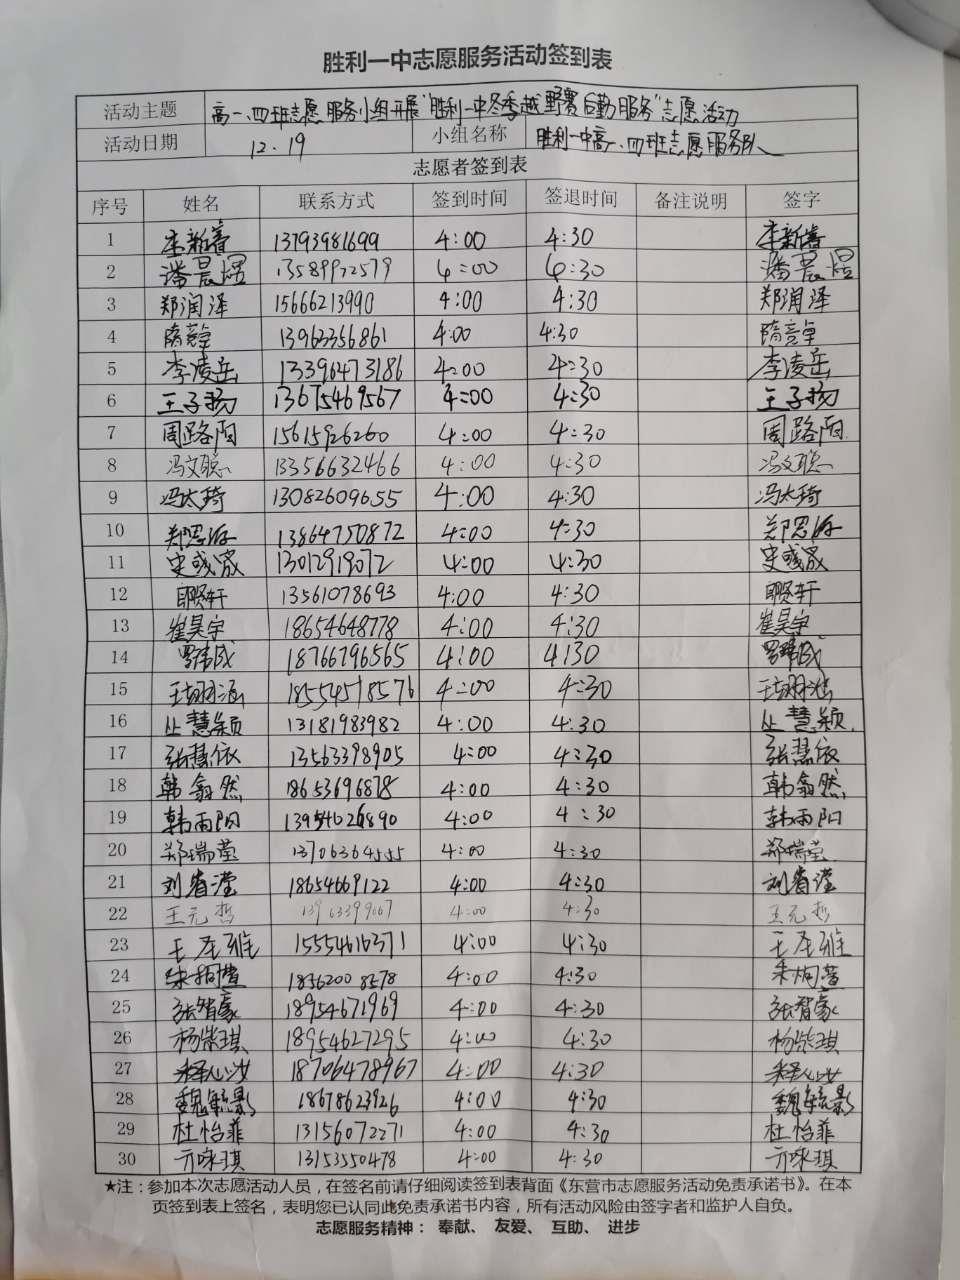 胜利一中志愿服务活动签到表
活动主题 高一.四班志愿服务小组开展"胜利一中冬季越野赛后勤服务"志愿活动
活动日期 12.19 小组名称 胜利一中高一.四班志愿服务队
志愿者签到表
序号 姓名 联系方式 签到时间 签退时间 备注说明 签字
1 李新睿 13793981699 4:00 4:30 李新睿
2 潘晨煜 13589972579 4:00 4:30 潘晨煜
3 郑润泽 15666213990 4:00 4:30 郑润泽
4 13963356861 4:00 4:30
5 李凌岳 13396473186 4:00 4:30 李凌岳
6 王子扬 13675469567 4:00 4:30 王子扬
7 周路阳 15615926260 4:00 4:30 周路阳
8 冯文聪 13356632466 4:00 4:30 冯文聪
9 冯太琦 13082609655 4:00 4:30 冯太琦
10 13864750872 4:00 4:30
11 13012919072 4:00 4:30
12 13561078693 4:00 4:30
13 崔昊宇 18654648778 4:00 4:30 崔昊宇
14 18766796565 4:00 4:30
15 18554518576 4:00 4:30
16 丛慧颖 13181983982 4:00 4:30 丛慧颖
17 张慧依 13563398905 4:00 4:30 张慧依
18 韩翕然 18653696878 4:00 4:30 韩翕然
19 韩雨阳 13954026890 4:00 4:30 韩雨阳
20 郑瑞莹 13706364555 4:00 4:30 郑瑞莹
21 刘睿滢 18654669122 4:00 4:30 刘睿滢
22 王元哲 13963399067 4:00 4:30 王元哲
23 15554616371 4:00 4:30
24 18562008578 4:00 4:30
25 张智豪 18954671969 4:00 4:30 张智豪
26 杨紫琪 18954627295 4:00 4:30 杨紫琪
27 18706478967 4:00 4:30
28 魏毓影 18678623926 4:00 4:30 魏毓影
29 杜怡菲 13156072271 4:00 4:30 杜怡菲
30 亓咏琪 13153550478 4:00 4:30 亓咏琪
★注：参加本次志愿活动人员，在签名前请仔细阅读签到表背面《东营市志愿服务活动免责承诺书》。在本
页签到表上签名，表明您已认同此免责承诺书内容，所有活动风险由签字者和监护人自负。
志愿服务精神： 奉献、 友爱、 互助、 进步